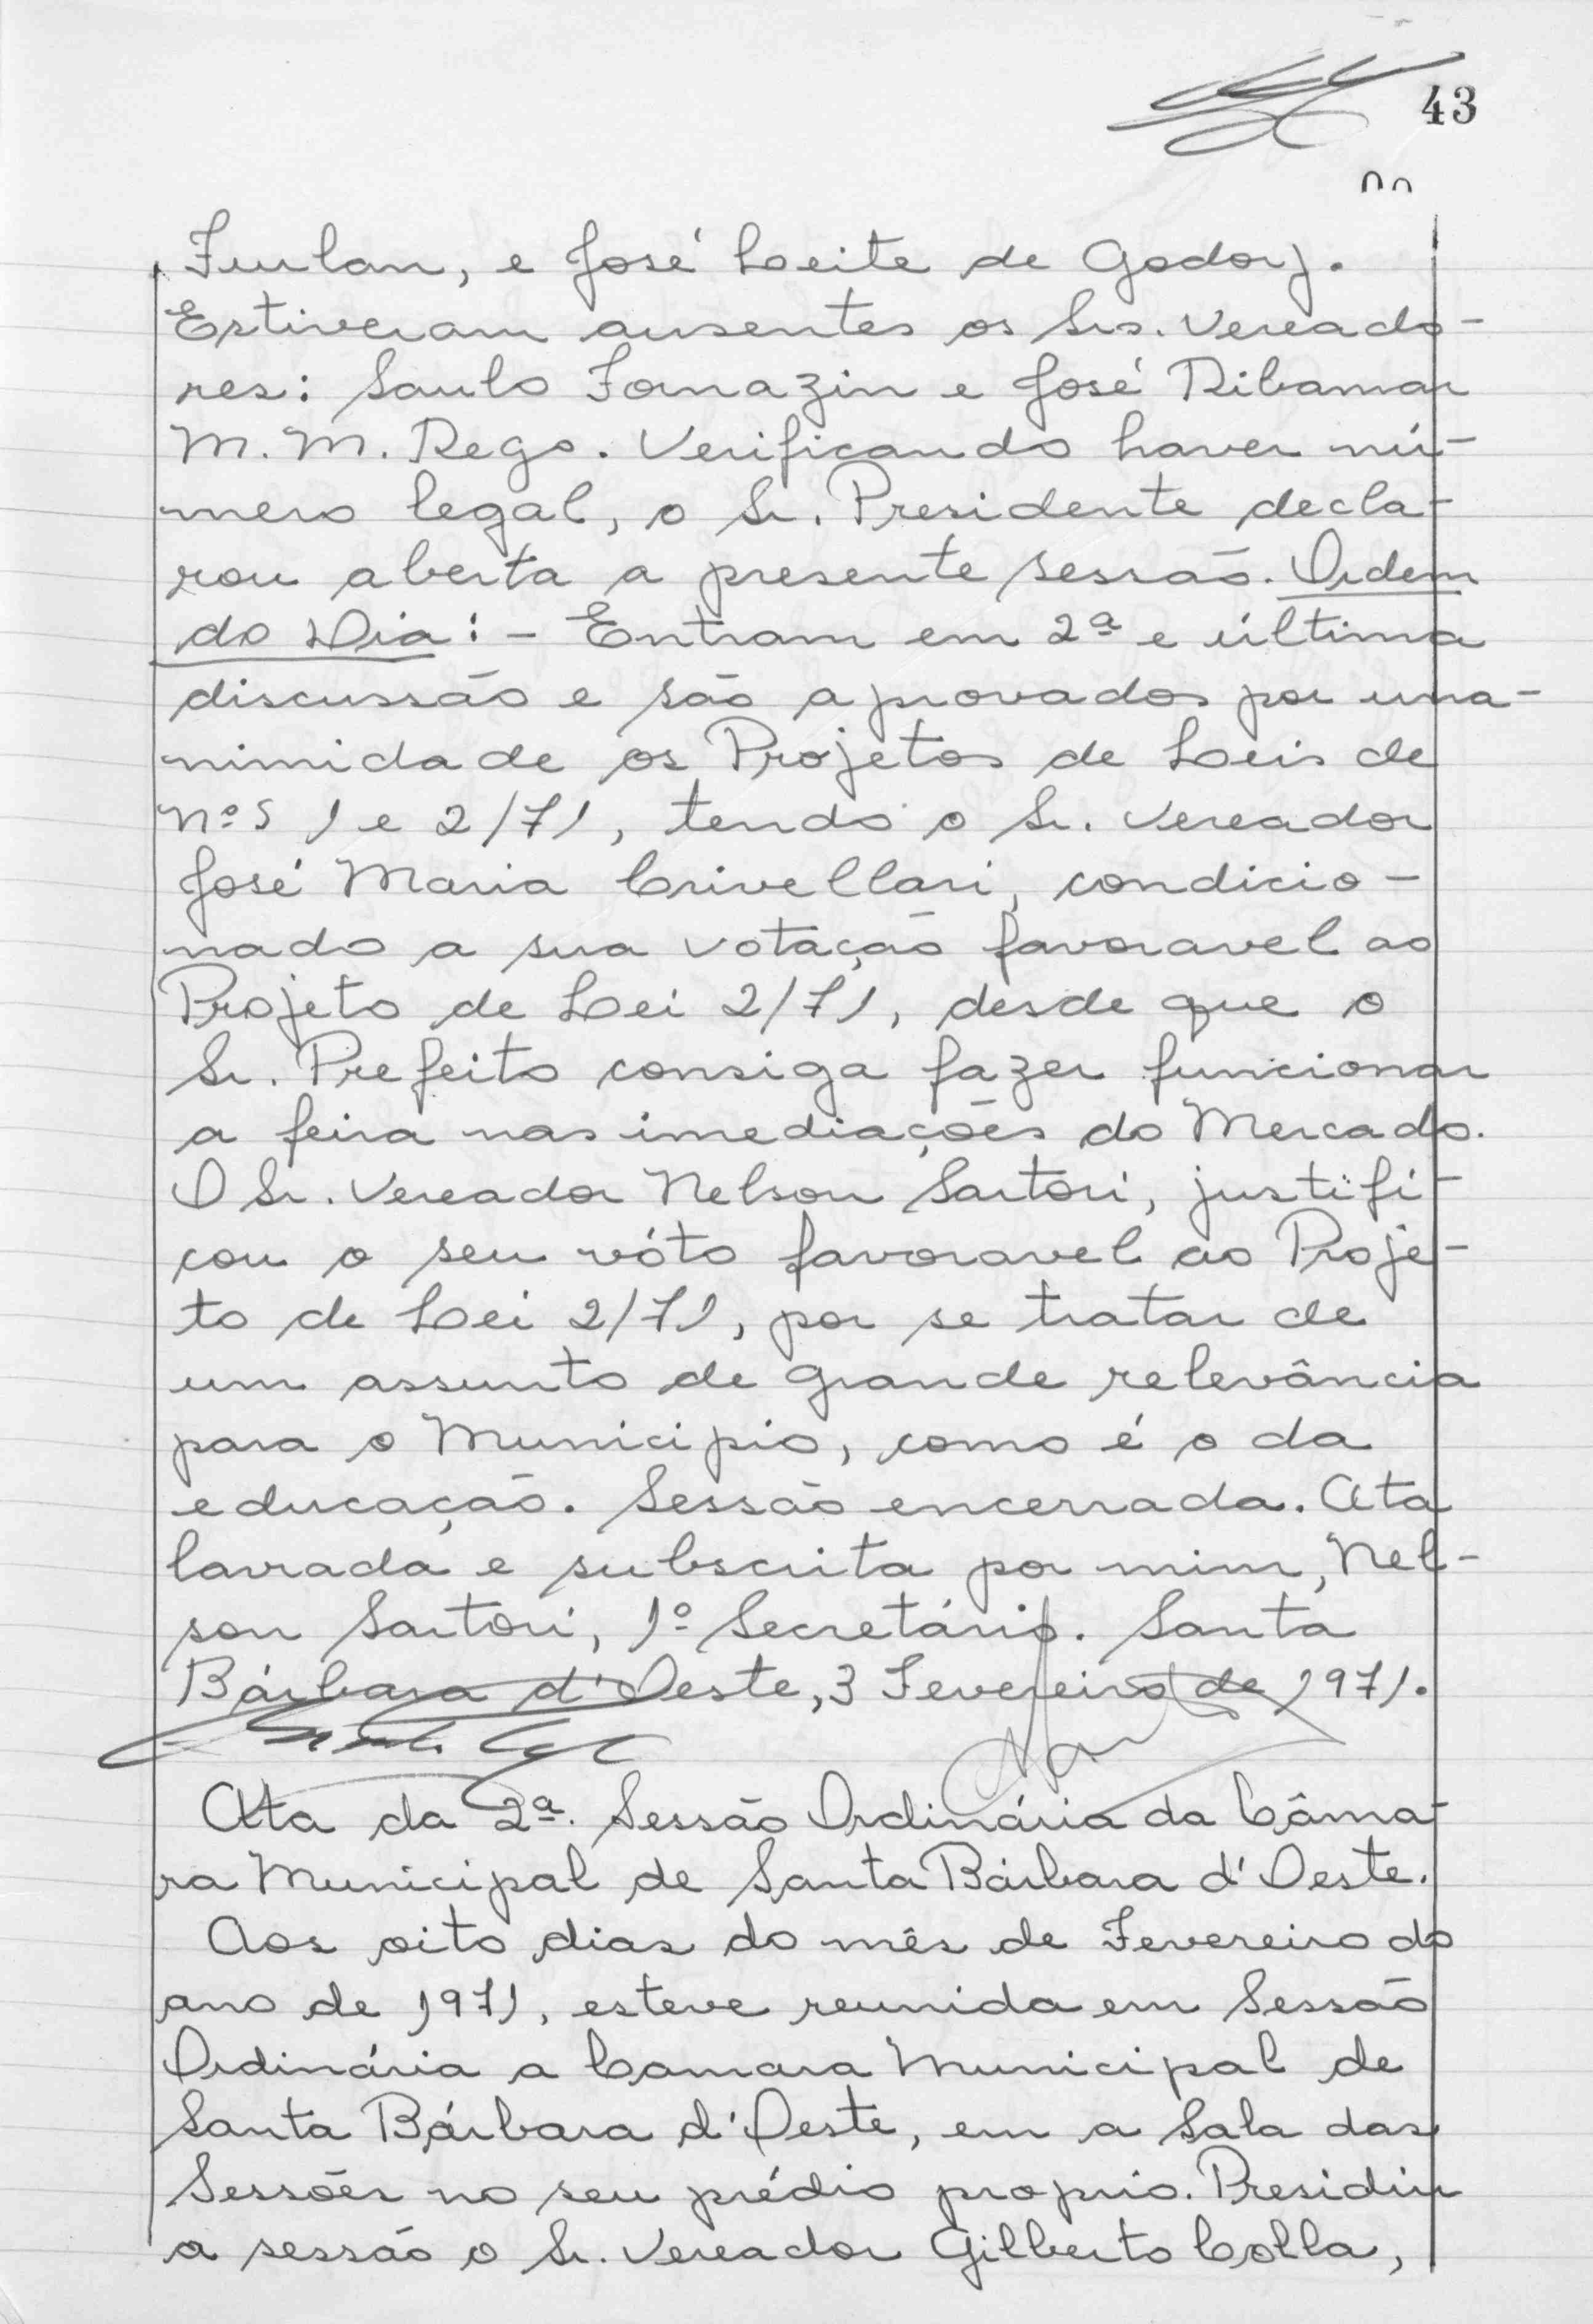 43
Furlan, e José Leite de Godoy.
Estiveram ausentes os Srs. Vereado-
res: Saulo Fornazin e José Ribamar
M. M. Rego. Verificando haver nú-
mero legal, o Sr. Presidente decla-
rou aberta a presente sessão. Ordem
do Dia: - Entram em 2ª e última
discussão e são aprovados por una-
nimidade os Projetos de Leis de
nºs 1 e 2/71, tendo o Sr. Vereador
José Maria Crivellari, condicio-
nado a sua votação favoravel ao
Projeto de Lei 2/71, desde que o
Sr. Prefeito consiga fazer funcionar
a feira nas imediações do Mercado.
O Sr. Vereador Nelson Sartori, justifi-
cou o seu vóto favoravel ao Proje-
to de Lei 2/71, por se tratar de
um assunto de grande relevância
para o Municipio, como é o da
educação. Sessão encerrada. Ata
lavrada e subscrita por mim, Nel-
son Sartori, 1º Secretário. Santa
Bárbara d'Oeste, 3 Fevereiro de 1971.
Ata da 2ª. Sessão Ordinária da Câma-
ra Municipal de Santa Bárbara d'Oeste.
Aos oito dias do mês de Fevereiro do
ano de 1971, esteve reunida em Sessão
Ordinária a Camara Municipal de
Santa Bárbara d'Oeste, em a Sala das
Sessões no seu prédio proprio. Presidiu
a sessão o Sr. Vereador Gilberto Colla,